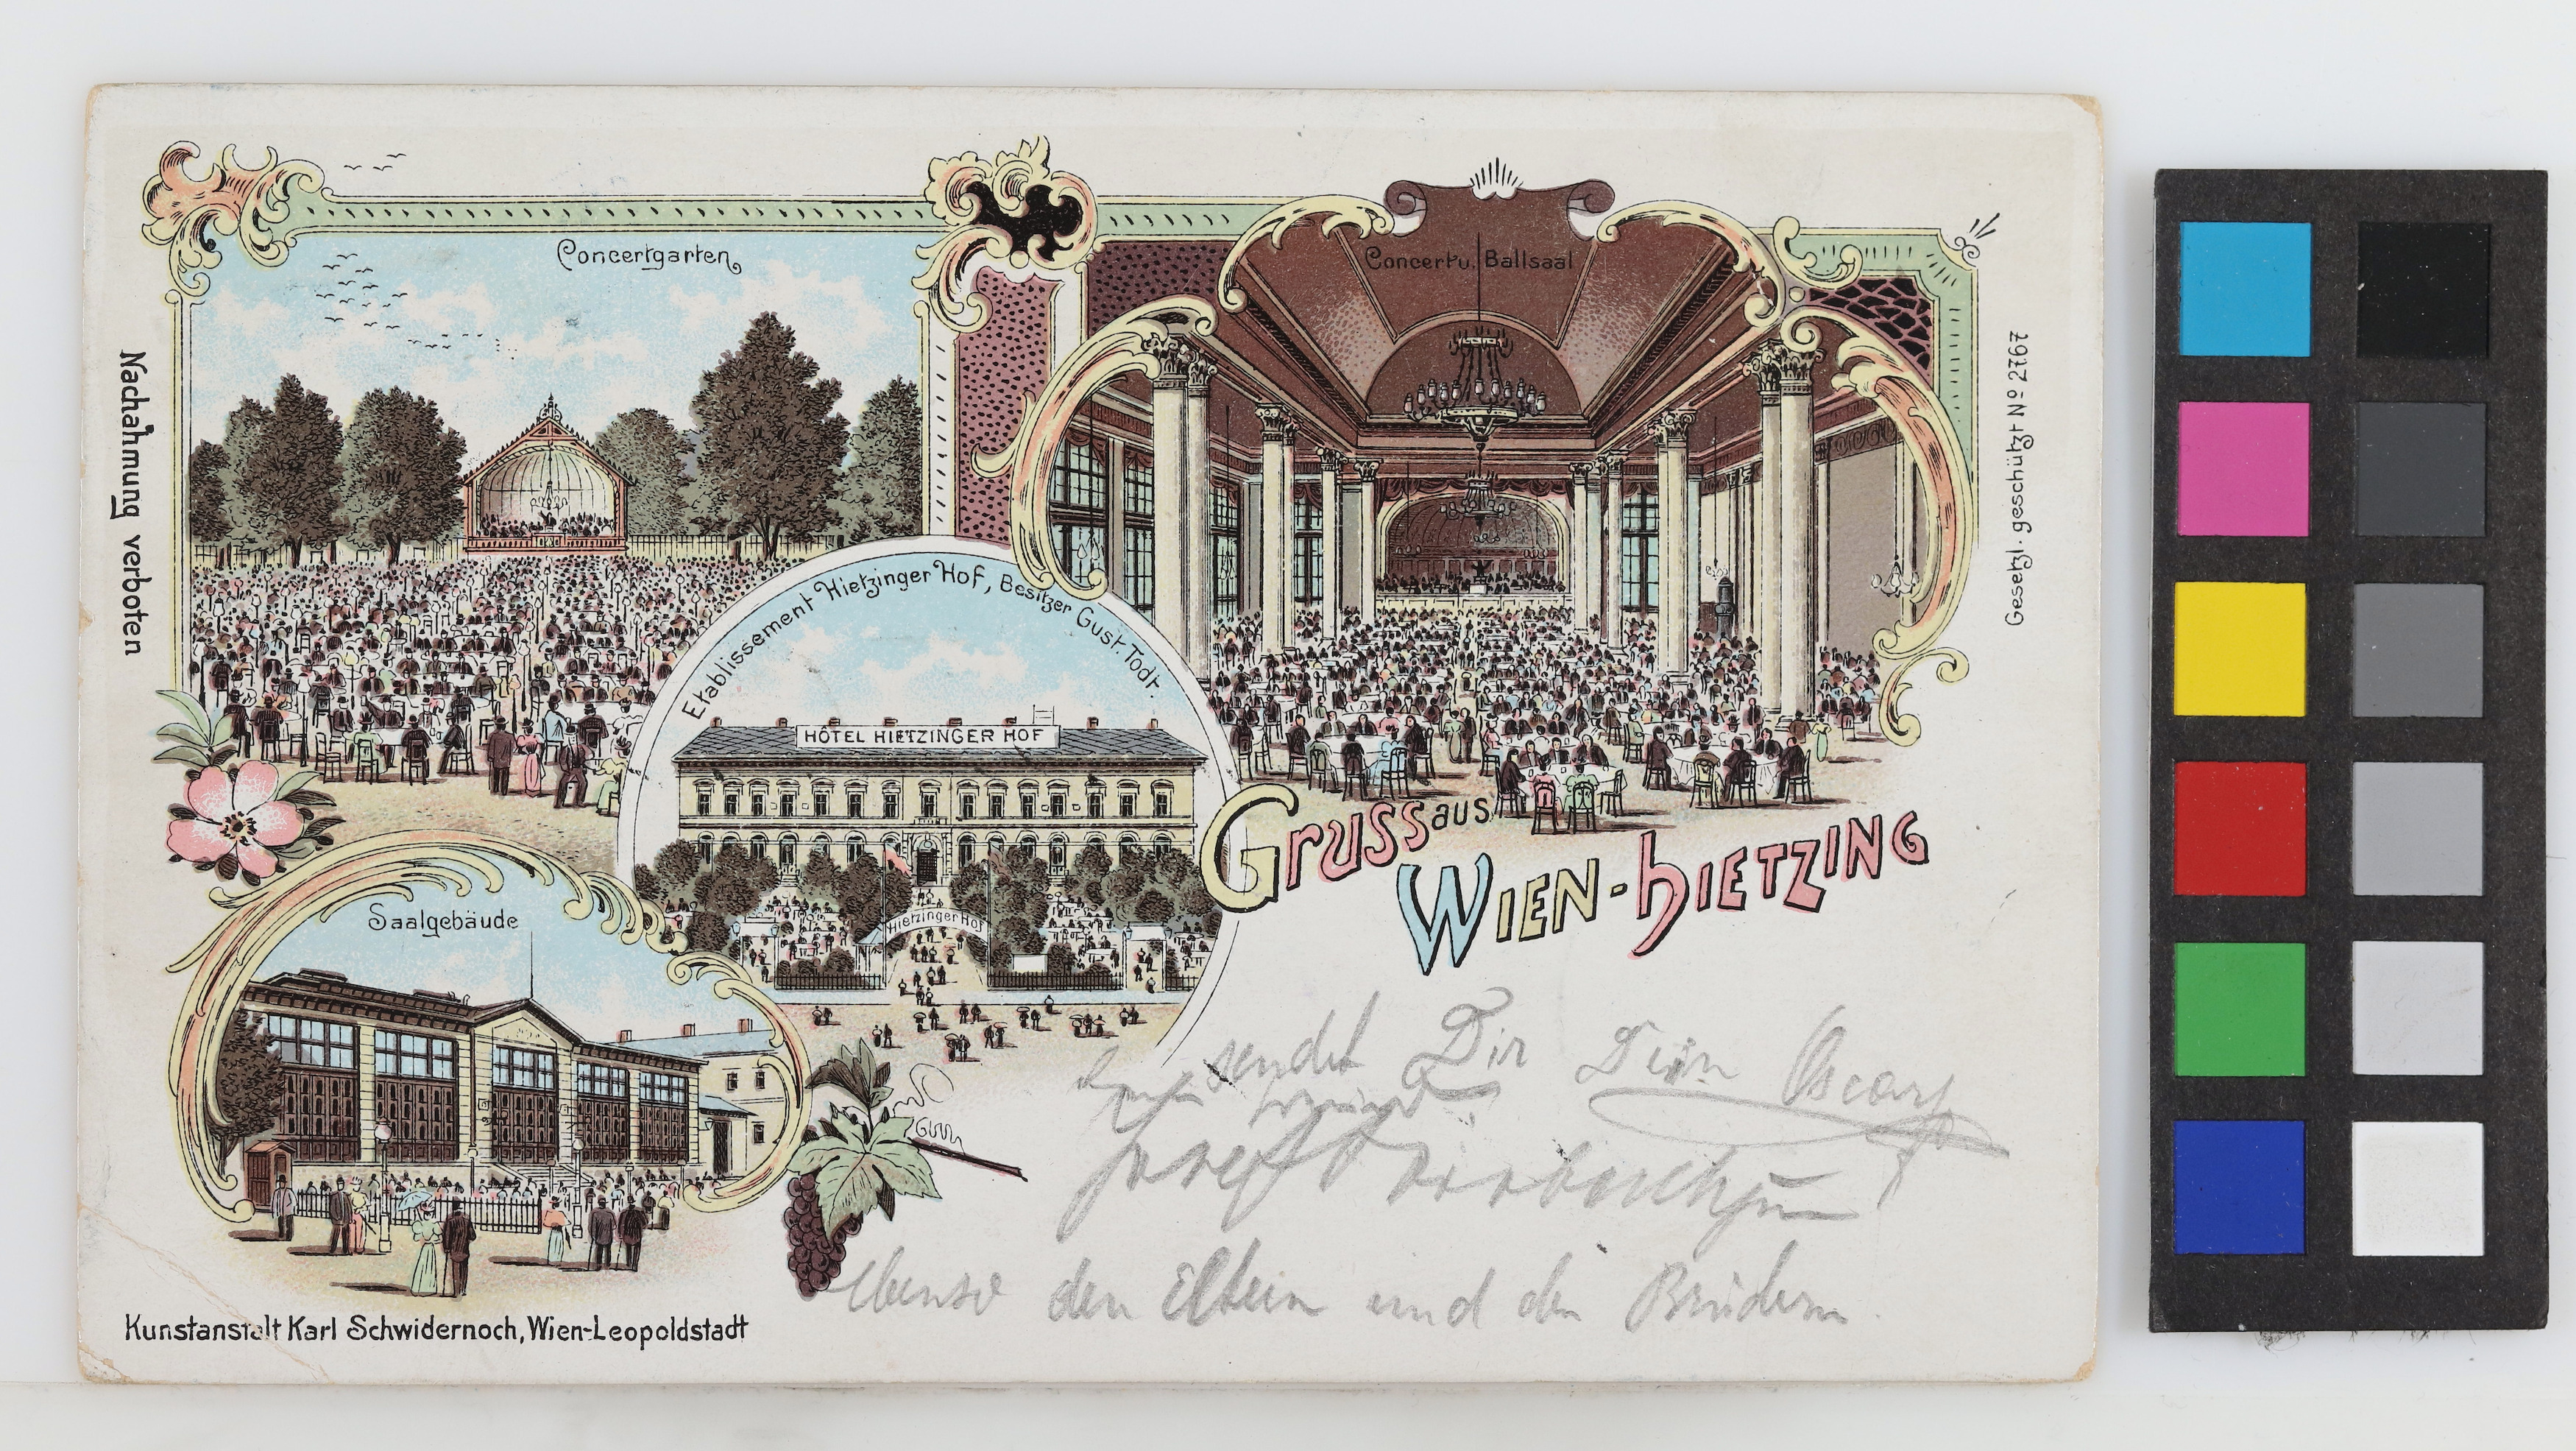 Concertgarten
Concert u. Ballsaal
Nachahmung verboten
Gesetzl. geschützt No 2767
Etablissement Hietzinger Hof, Besitzer Gust. Todt.
HÔTEL HIETZINGER HOF
Hietzinger Hof
Gruss aus
WIEN-HIETZING
Saalgebäude
sendet Dir Dein Oscar
Josef
Ebenso den Eltern und den Brüdern.
Kunstanstalt Karl Schwidernoch, Wien-Leopoldstadt